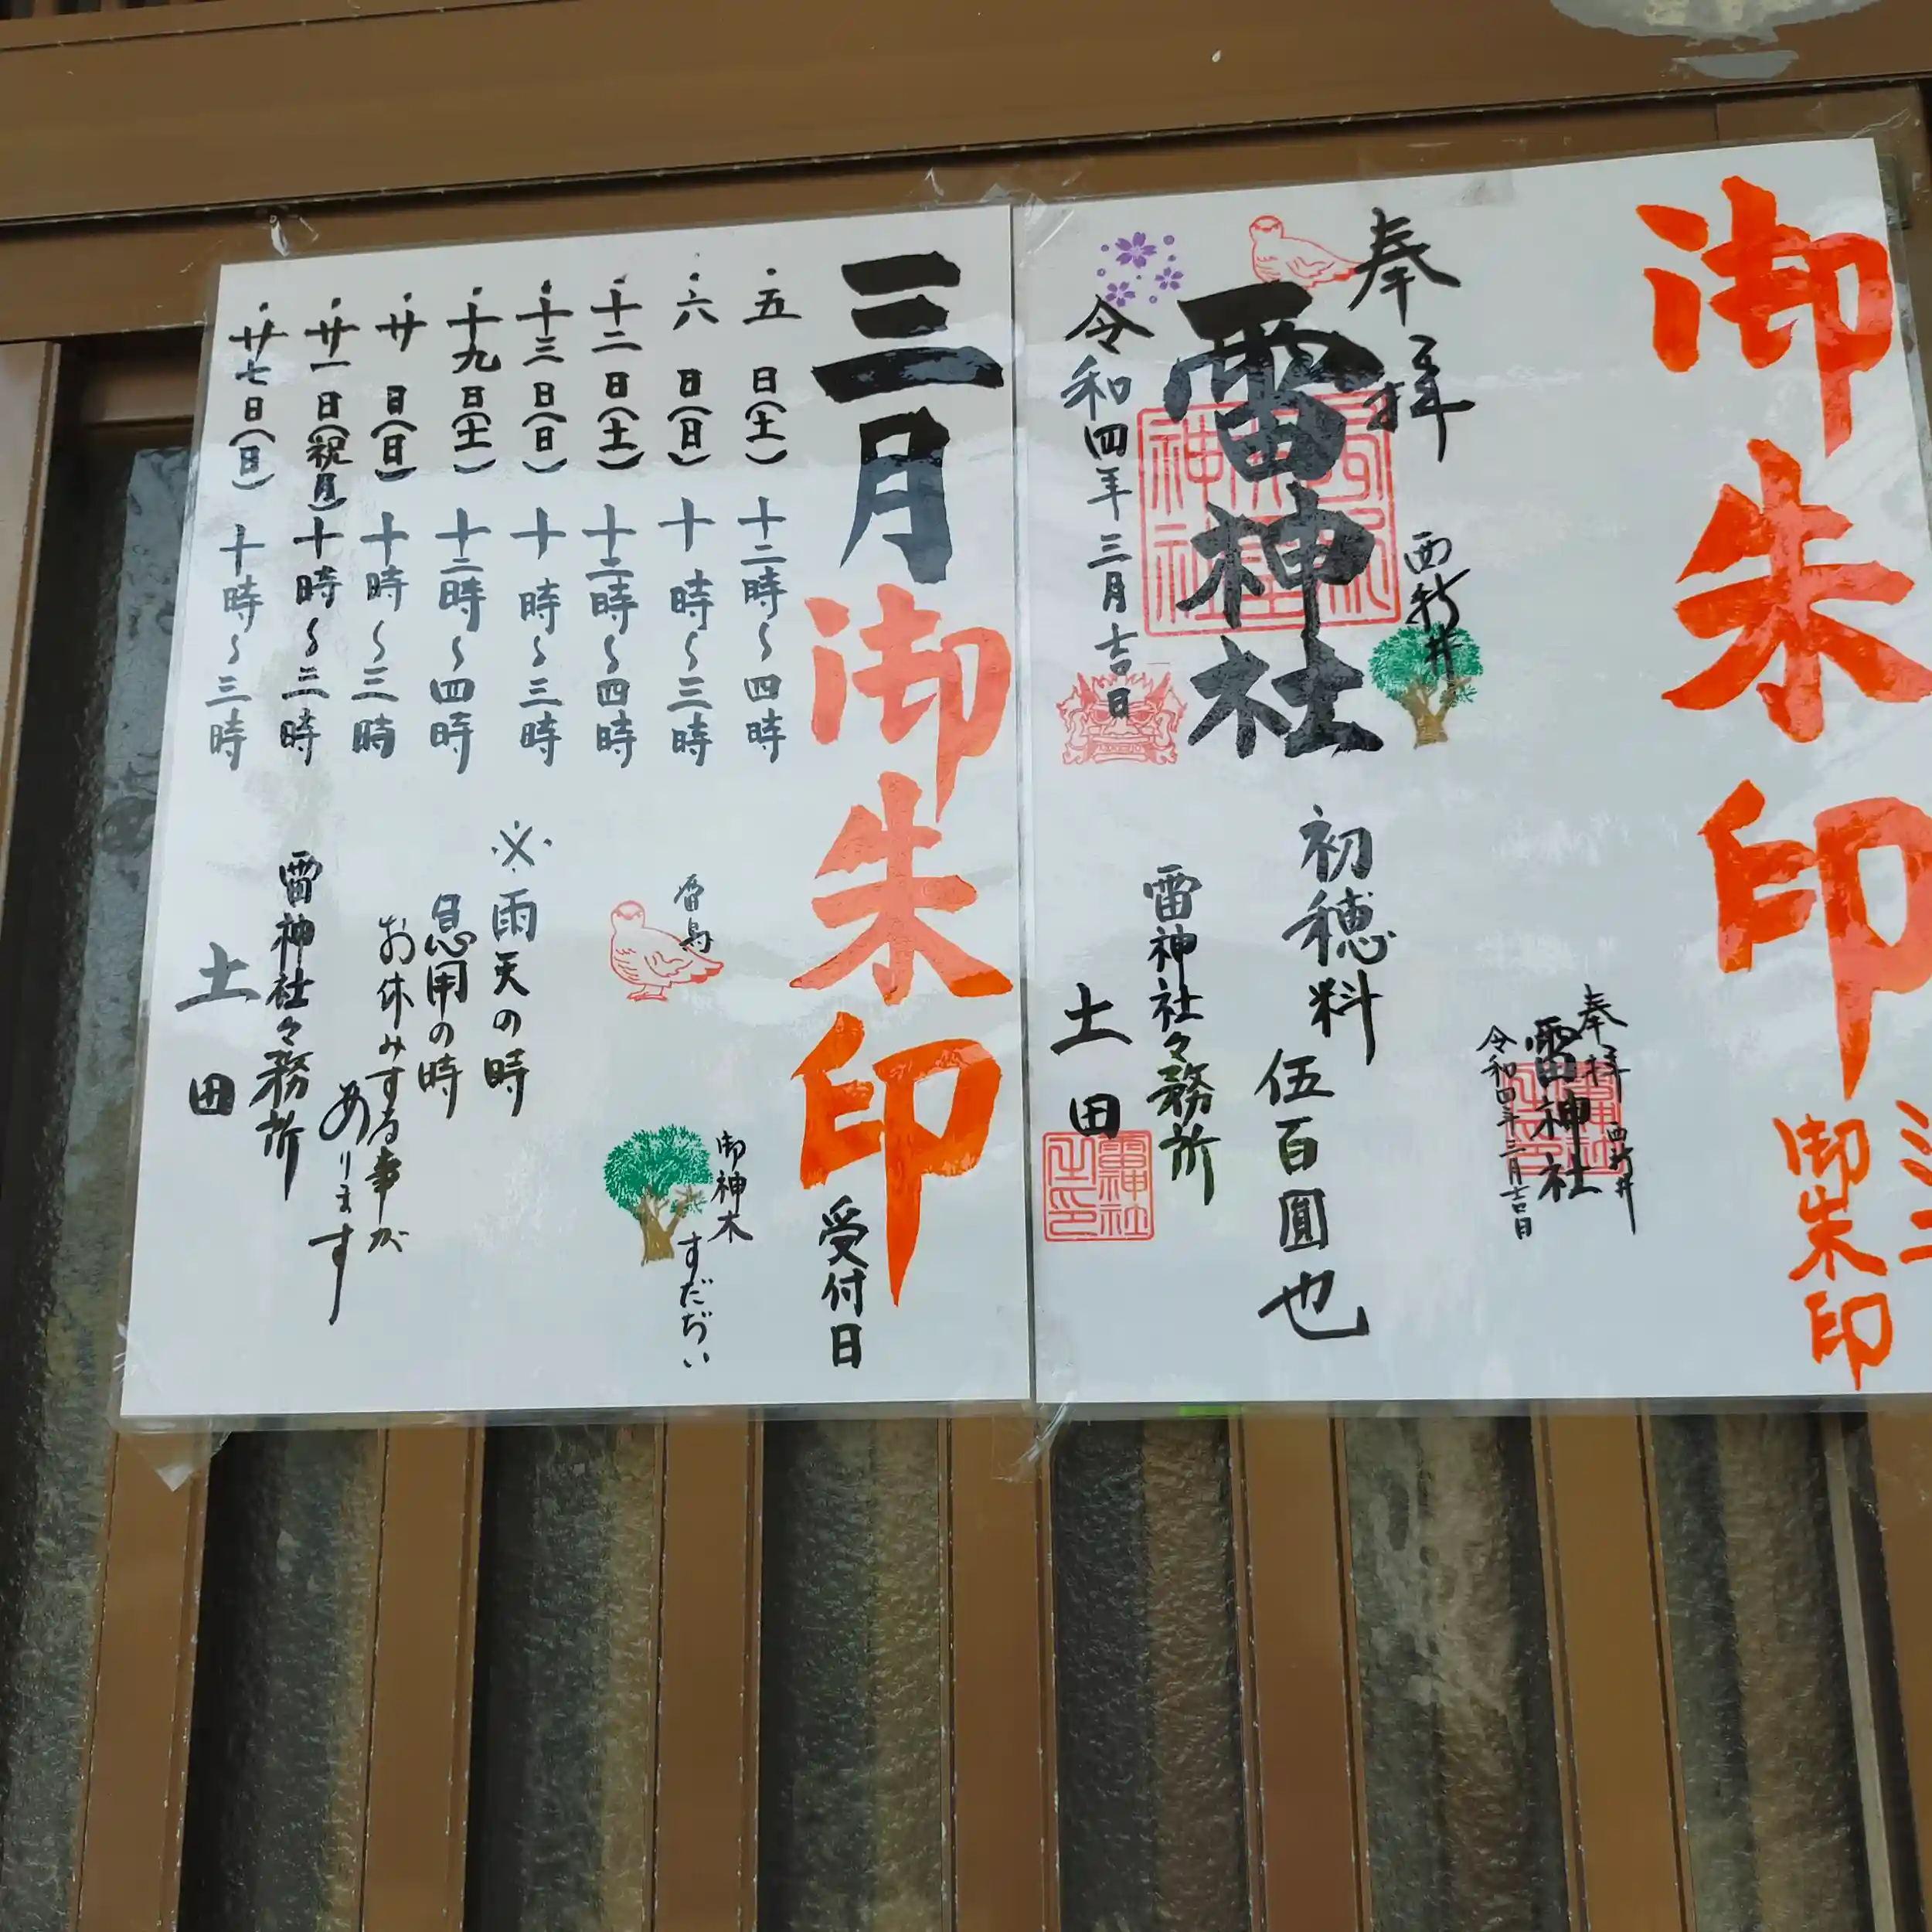 御朱印
ミニ
御朱印
奉拝
西新井
雷神社
令和四年三月吉日
奉拝
西新井
雷神社
令和四年三月吉日
初穂料
伍百圓也
雷神社々務所
土田
三月
御朱印
受付日
・五日(土)十二時〜四時
・六日(日)十時〜三時
・十二日(土)十二時〜四時
・十三日(日)十時〜三時
・十九日(土)十二時〜四時
・廿日(日)十時〜三時
・廿一日(祝月)十時〜三時
・廿七日(日)十時〜三時
雷鳥
御神木
すだぢい
※雨天の時
急用の時
お休みする事が
あります
雷神社々務所
土田